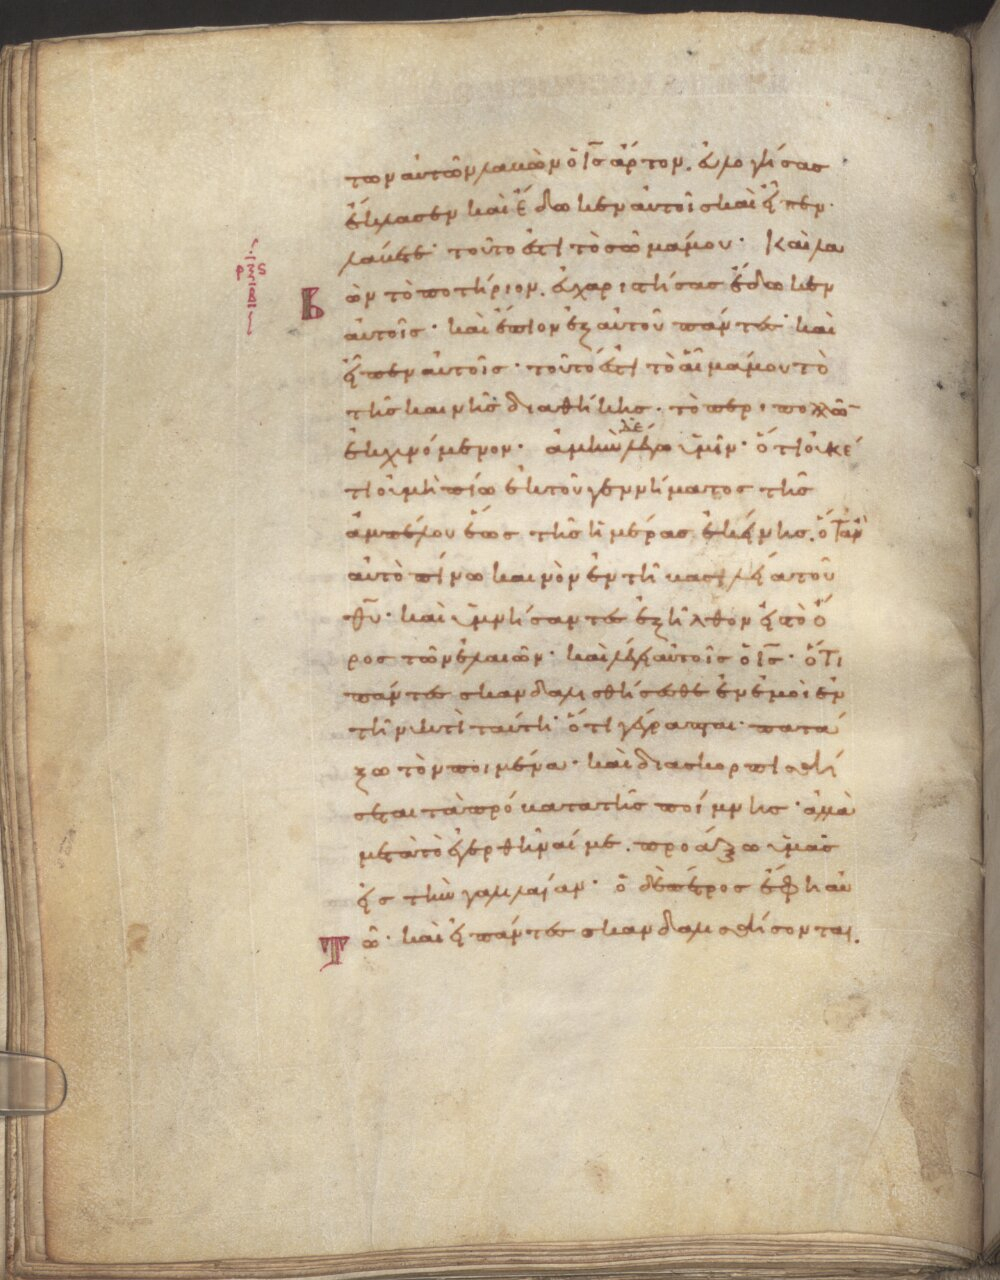 των αυτῶν λαβὼν ὁ ἰς ἄρτον. εὐλογήσας
ἔκλασεν καὶ ἔδωκεν αὐτοῖς καὶ εἶπεν·
λάβετε· τοῦτο ἐστι τὸ σῶμά μου· Καὶ λα
βὼν τὸ ποτήριον. εὐχαριστήσας ἔδωκεν
αὐτοῖς· καὶ ἔπιον ἐξ αὐτοῦ πάντες· καὶ
εἶπεν αὐτοῖς· τοῦτό ἐστι τὸ αἷμά μου τὸ
τῆς καινῆς διαθήκης. τὸ περι πολλῶ
ἐκχυνόμενον· ἀμὴν δὲ λέγω ὑμῖν· ὅτι οὐκέ
τι οὐ μὴ πίω ἐκ τοῦ γεννήματος τῆς
ἀμπέλου ἕως τῆς ἡμέρας ἐκείνης. ὅταν
αὐτὸ πίνω καινὸν ἐν τῇ βασιλείᾳ τοῦ
θῦ· καὶ ὑμνήσαντες ἐξῆλθον εἰς τὸ ὄ
ρος τῶν ἐλαιῶν· καὶ λέγει αὐτοῖς ὁ ἰς· ὅτι
πάντες σκανδαλισθήσεσθε ἐν ἐμοὶ ἐν
τῇ νυκτὶ ταύτῃ· ὅτι γέγραπται· πατά
ξω τὸν ποιμένα· καὶ διασκορπισθή
σεται τὰ πρόβατα τῆς ποίμνης· ἀλλὰ
μετὰ τὸ ἐγερθῆναί με. προάξω ὑμᾶς
εἰς τὴν γαλιλαίαν· ὁ δὲ πέτρος ἔφη αὐ
τῶ· καὶ εἰ πάντες σκανδαλισθήσονται.